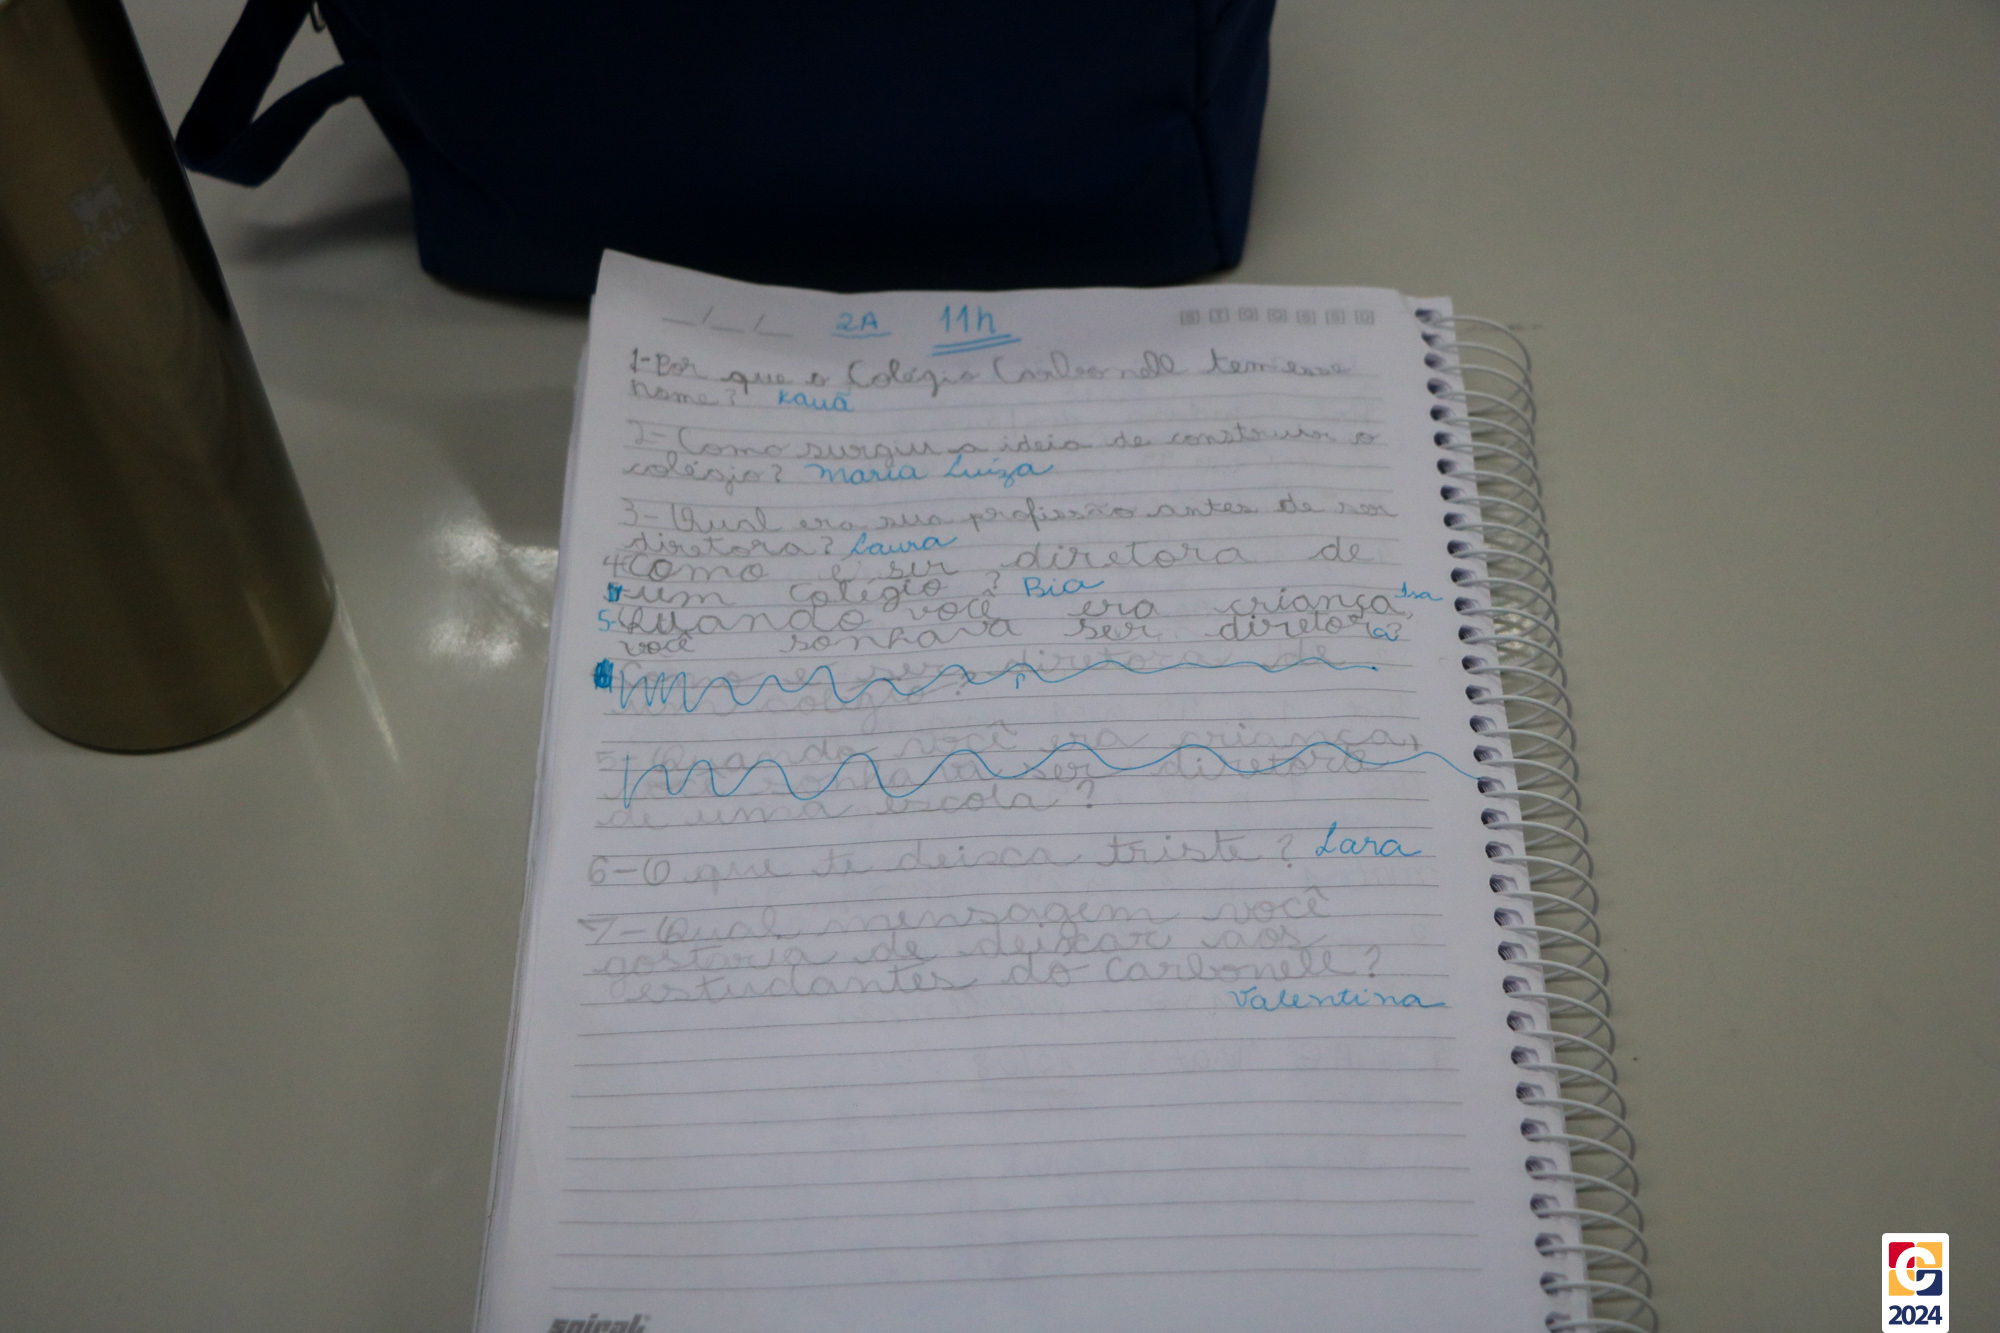 STANLEY
__/__/__ 2A 11h
1-Por que o Colégio Carbonell tem esse
nome? Kauã
2-Como surgiu a ideia de construir o
colégio? Maria Luiza
3-Qual era sua profissão antes de ser
diretora? Laura
4-Como é ser diretora de
um colégio? Bia
5-Quando você era criança, Isa
você sonhava ser diretora?
é ser diretora de
colégio?
5-Quando você era criança,
sonhava ser diretora
de uma escola?
6-O que te deixa triste? Lara
7-Qual mensagem você
gostaria de deixar aos
estudantes do Carbonell?
Valentina
spiral
2024